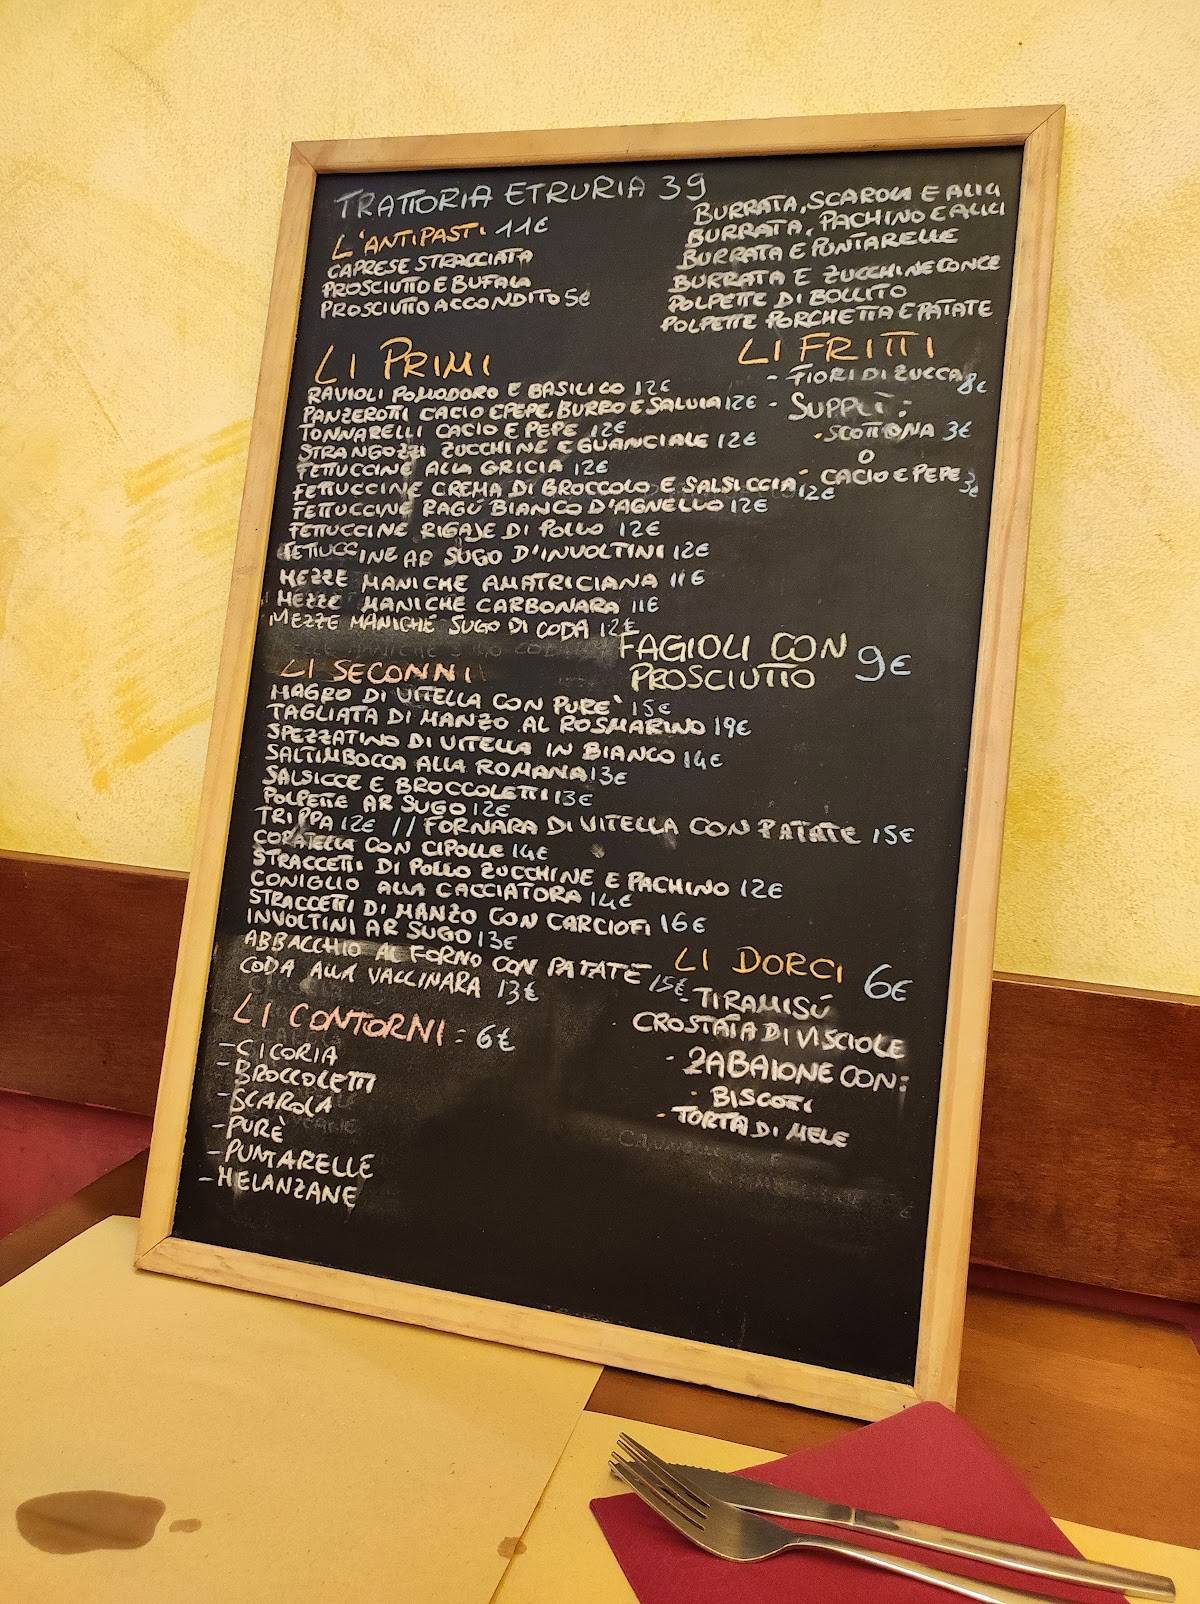 TRATTORIA ETRURIA 39
L'ANTIPASTI 11€
CAPRESE STRACCIATA
PROSCIUTTO E BUFALA
PROSCIUTTO ACCONDITO 5€
BURRATA, SCAROLA E ALICI
BURRATA, PACHINO E ALICI
BURRATA E PUNTARELLE
BURRATA E ZUCCHINE CONCE
POLPETTE DI BOLLITO
POLPETTE PORCHETTA E PATATE
LI PRIMI
RAVIOLI POMODORO E BASILICO 12€
PANZEROTTI CACIO E PEPE, BURRO E SALVIA 12€
TONNARELLI CACIO E PEPE 12€
STRANGOZZI ZUCCHINE E GUANCIALE 12€
FETTUCCINE ALLA GRICIA 12€
FETTUCCINE CREMA DI BROCCOLO E SALSICCIA 12€
FETTUCCINE RAGÚ BIANCO D'AGNELLO 12€
FETTUCCINE RIGAJE DI POLLO 12€
FETTUCCINE AR SUGO D'INVOLTINI 12€
MEZZE MANICHE AMATRICIANA 11€
MEZZE MANICHE CARBONARA 11€
MEZZE MANICHE SUGO DI CODA 12€
LI FRITTI
- FIORI DI ZUCCA 8€
- SUPPLÌ:
· SCOTTONA 3€
O
· CACIO E PEPE 3€
FAGIOLI CON
PROSCIUTTO 9€
LI SECONNI
MAGRO DI VITELLA CON PURE' 15€
TAGLIATA DI MANZO AL ROSMARINO 19€
SPEZZATINO DI VITELLA IN BIANCO 14€
SALTIMBOCCA ALLA ROMANA 13€
SALSICCE E BROCCOLETTI 13€
POLPETTE AR SUGO 12€
TRIPPA 12€ // FORNARA DI VITELLA CON PATATE 15€
CORATELLA CON CIPOLLE 14€
STRACCETTI DI POLLO ZUCCHINE E PACHINO 12€
CONIGLIO ALLA CACCIATORA 14€
STRACCETTI DI MANZO CON CARCIOFI 16€
INVOLTINI AR SUGO 13€
ABBACCHIO AL FORNO CON PATATE 15€
CODA ALLA VACCINARA 13€
LI CONTORNI: 6€
- CICORIA
- BROCCOLETTI
- SCAROLA
- PURÈ
- PUNTARELLE
- MELANZANE
LI DORCI 6€
- TIRAMISÚ
· CROSTATA DI VISCIOLE
· ZABAIONE CON:
· BISCOTTI
· TORTA DI MELE